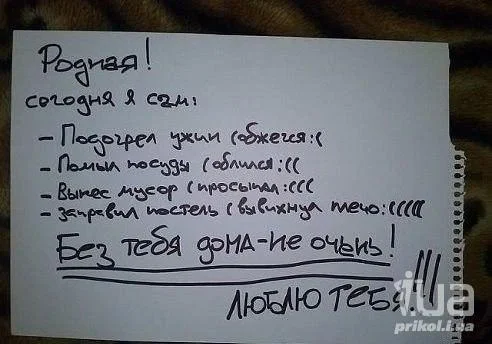 Родная!
сегодня я сам:
- Подогрел ужин (обжегся:(
- Помыл посуды (облился:((
- Вынес мусор (просыпал:(((
- заправил постель (вывихнул плечо:(((((
Без тебя дома-не очень!
ЛЮБЛЮ ТЕБЯ!!!
i.ua
prikol.i.ua